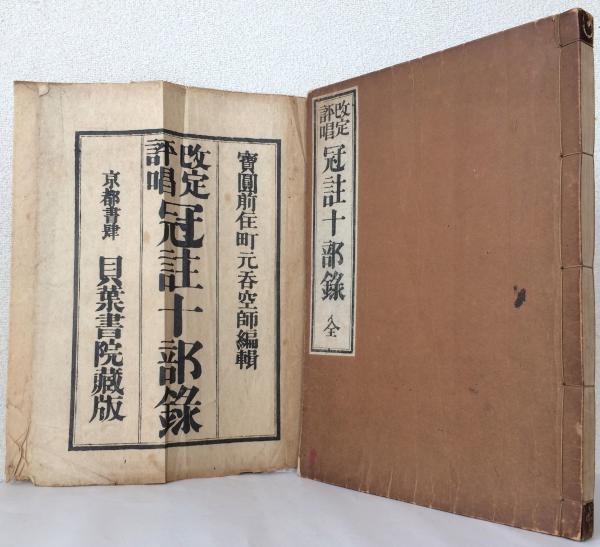 寶圓前住町元吞空師編輯
改定
評唱
冠註十部錄
京都書肆
貝葉書院藏版
改定
評唱
冠註十部錄
全